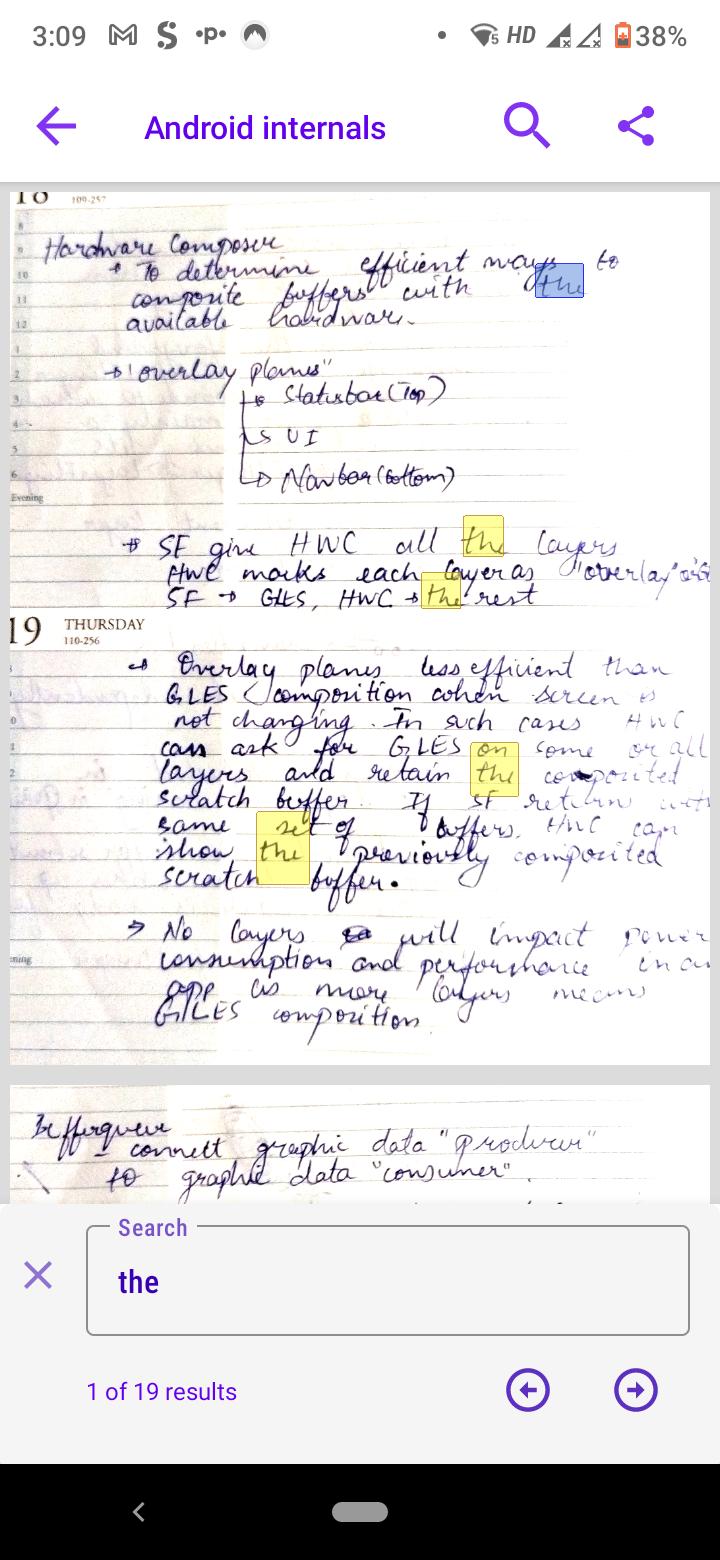 3:09
HD
38%
Android internals
18
109-257
8
9
Hardware Composer
10
To determine efficient ways to
11
composite buffers with the
12
available hardware.
1
2
"overlay planes"
3
Statusbar (Top)
4
5
UI
6
Navbar (bottom)
Evening
SF give HWC all the layers
HWC marks each layer as "overlay" or
SF → GLES, HWC → the rest
19 THURSDAY
110-256
Overlay planes less efficient than
GLES composition when screen is
not changing. In such cases HWC
can ask for GLES on some or all
layers and retain the composited
scratch buffer. If SF return with
same set of buffers, HWC can
show the previously composited
scratch buffer.
No layers will impact power
consumption and performance in an
app as more layers means
GLES composition
Bufferqueue
- connect graphic data "producer"
to graphic data "consumer".
Search
the
1 of 19 results